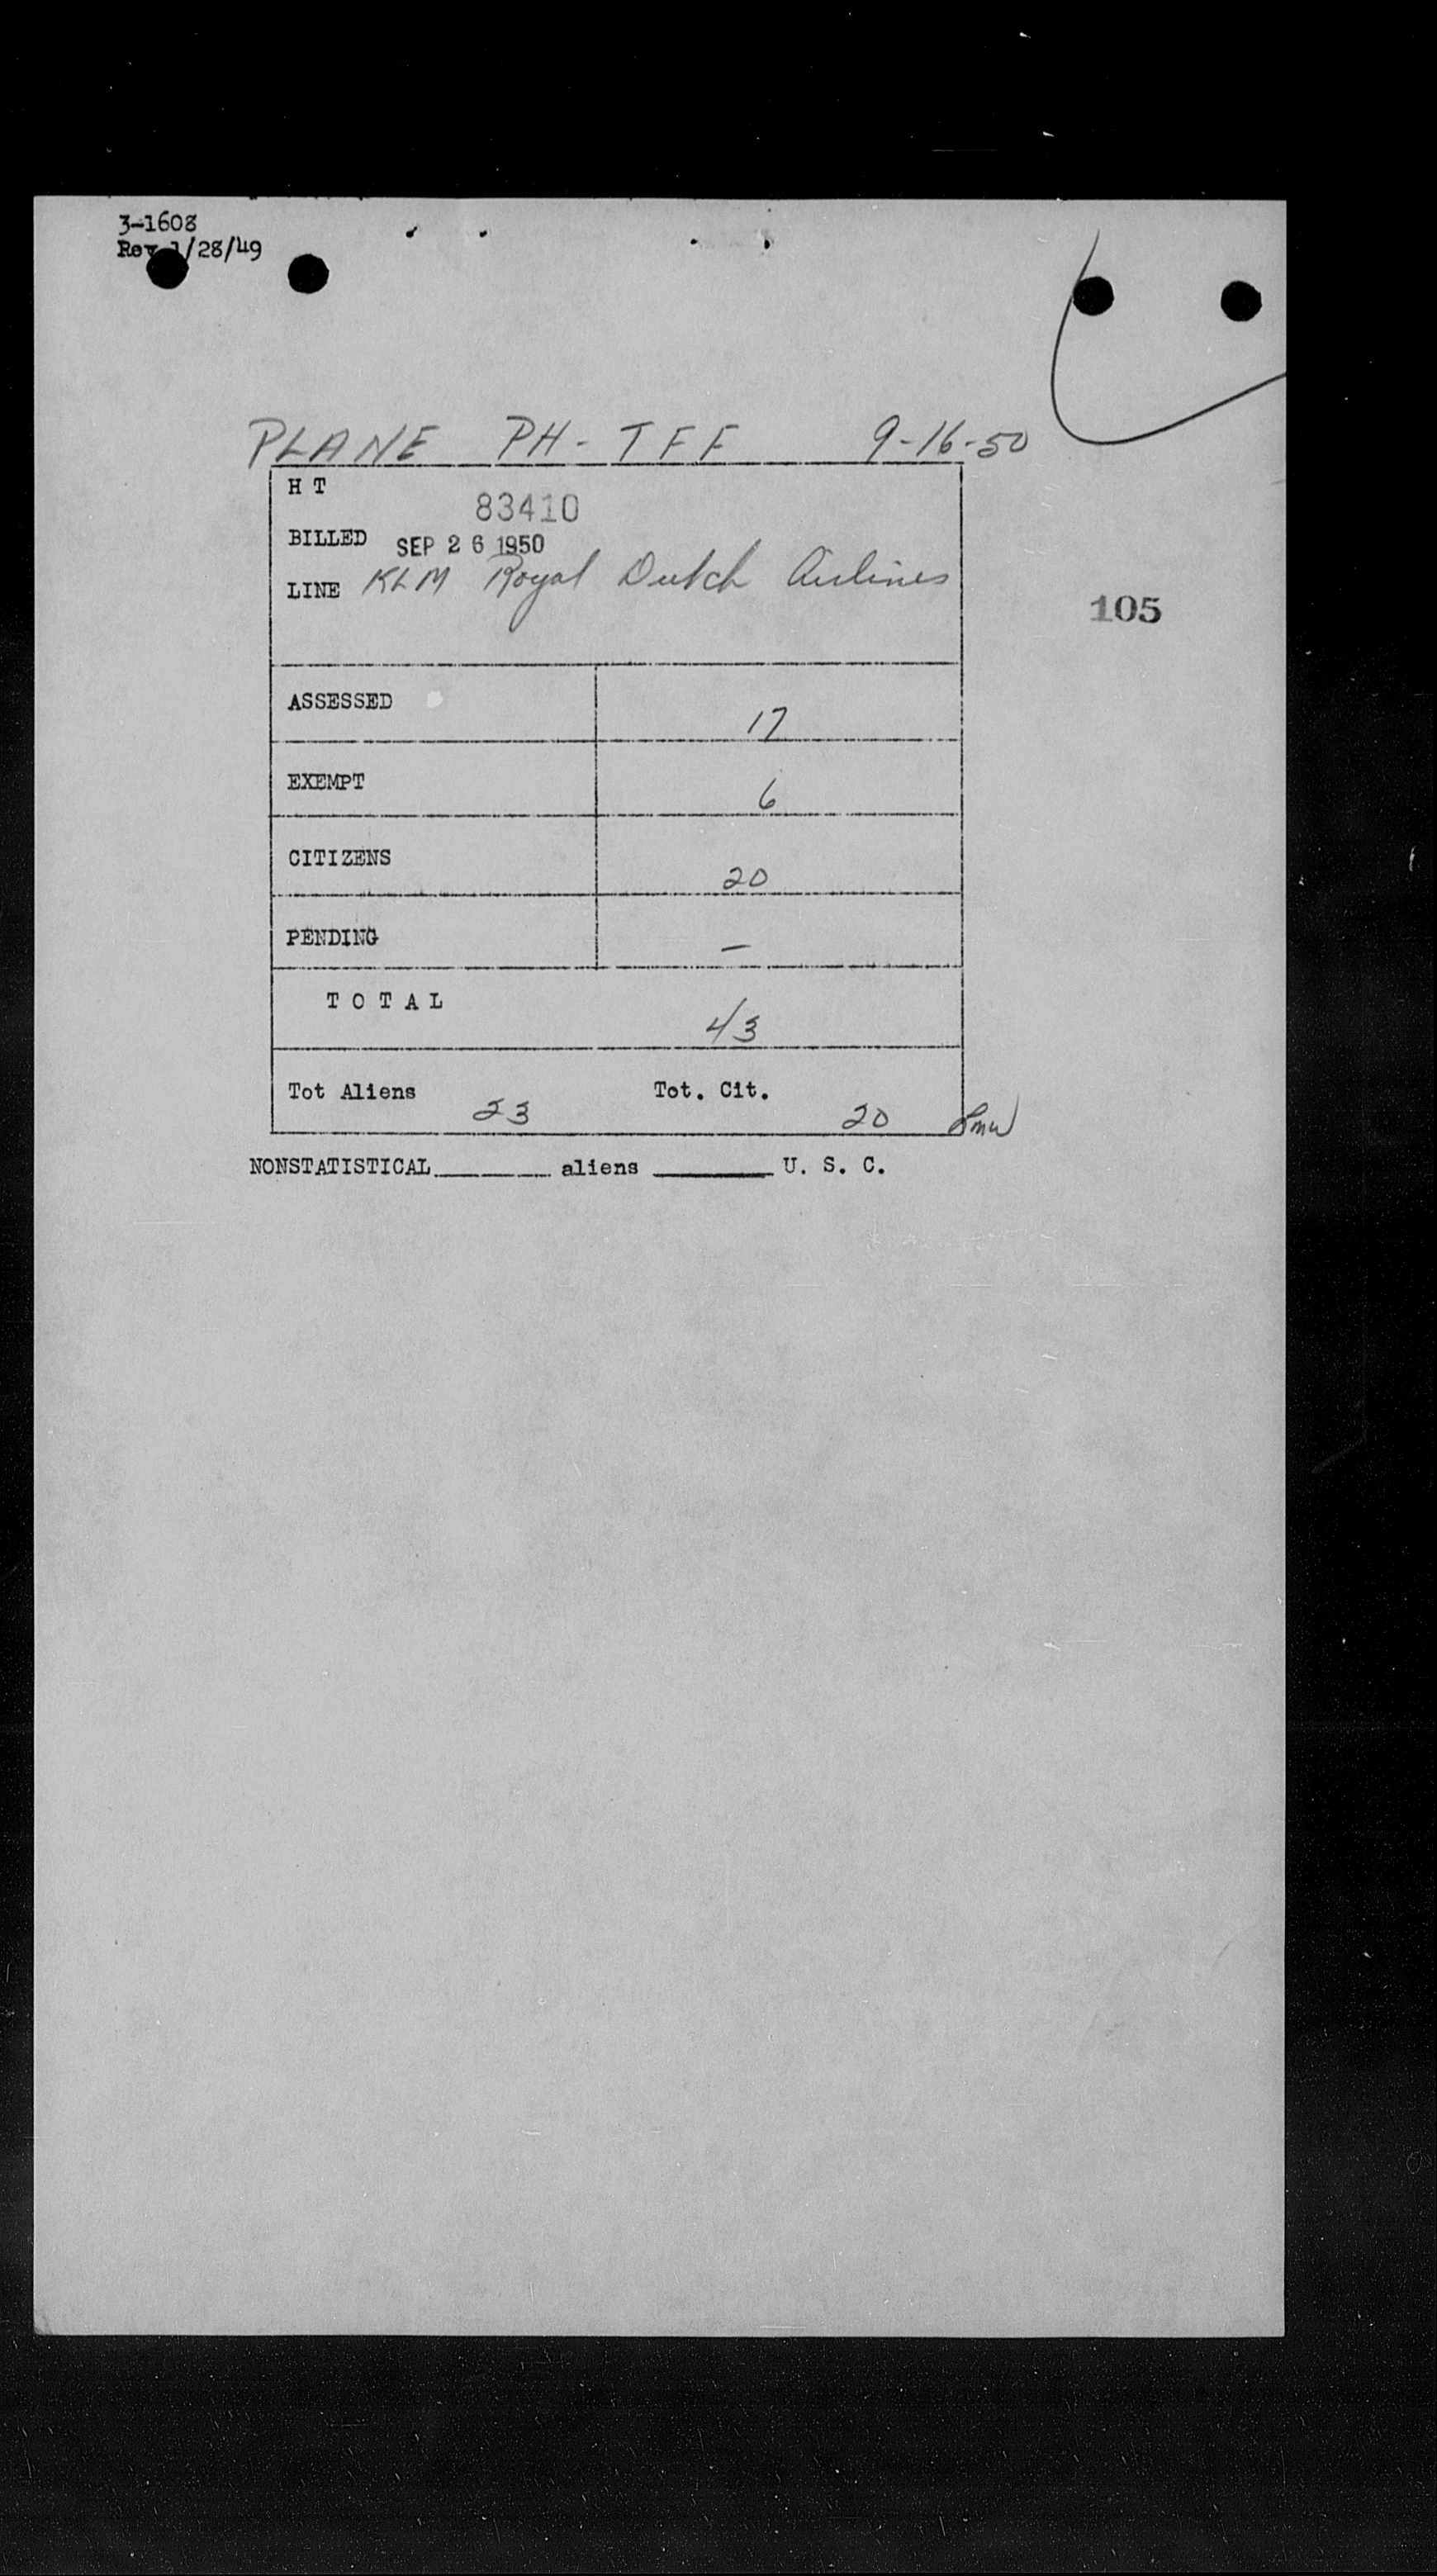 3-1608
Rev 1/28/49
PLANE PH-TFF 9-16-50
H T
83410
BILLED SEP 26 1950
LINE KLM Royal Dutch Airlines
105
ASSESSED 17
EXEMPT 6
CITIZENS 20
PENDING –
TOTAL 43
Tot Aliens 23 Tot. Cit. 20
NONSTATISTICAL______ aliens ______ U. S. C.